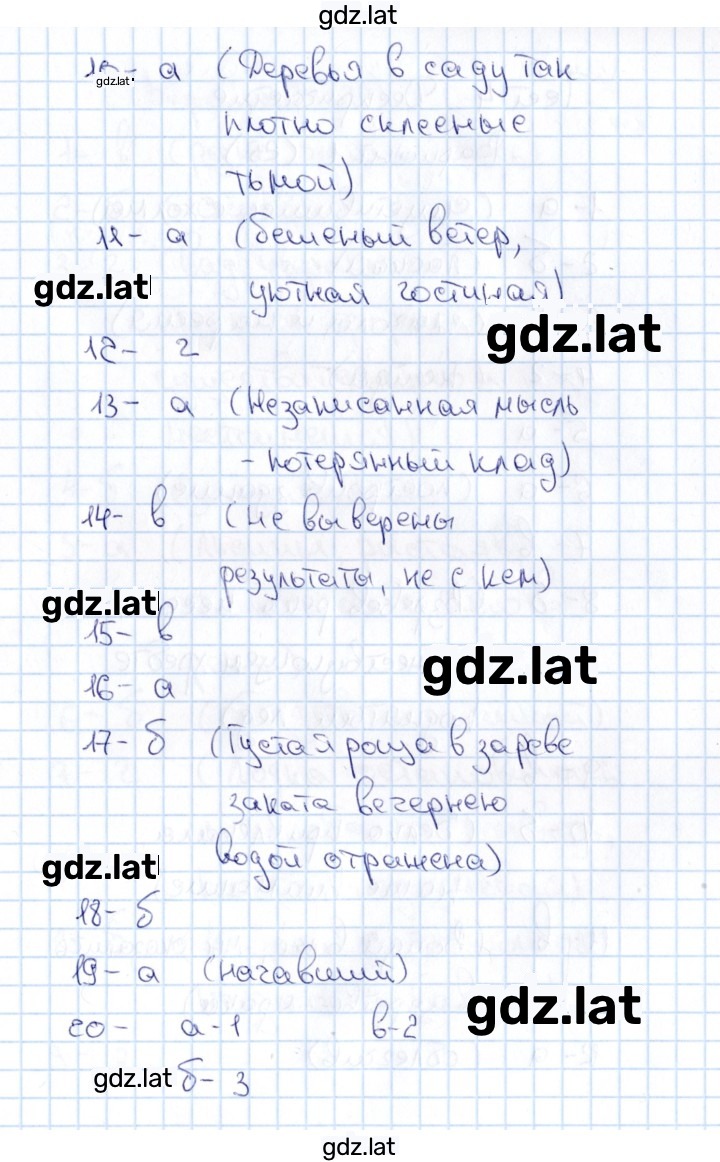 gdz.lat
а (Деревья в саду так
gdz.lat
плотно склееные
тьмой)
11- а (бешеный ветер,
gdz.lat
уютная гостиная)
gdz.lat
12- г
13- а (Незаписанная мысль
- потерянный клад)
14- в (не выверены
результаты, не с кем)
gdz.lat
15- в
gdz.lat
16- а
17- б (Густая роща в зареве
заката вечернею
водой отражена)
gdz.lat
18- б
19- а (начавший)
gdz.lat
20- а-1 в-2
gdz.lat б- 3
gdz.lat